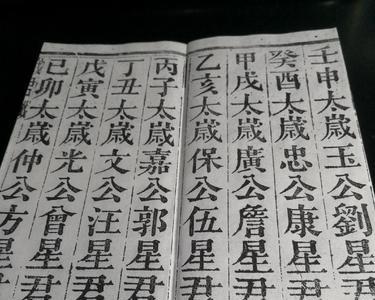 壬申太歲玉公劉星君
癸酉太歲忠公康星君
甲戌太歲廣公詹星君
乙亥太歲保公伍星君
丙子太歲嘉公郭星君
丁丑太歲文公汪星君
戊寅太歲光公曾星君
己卯太歲仲公方星